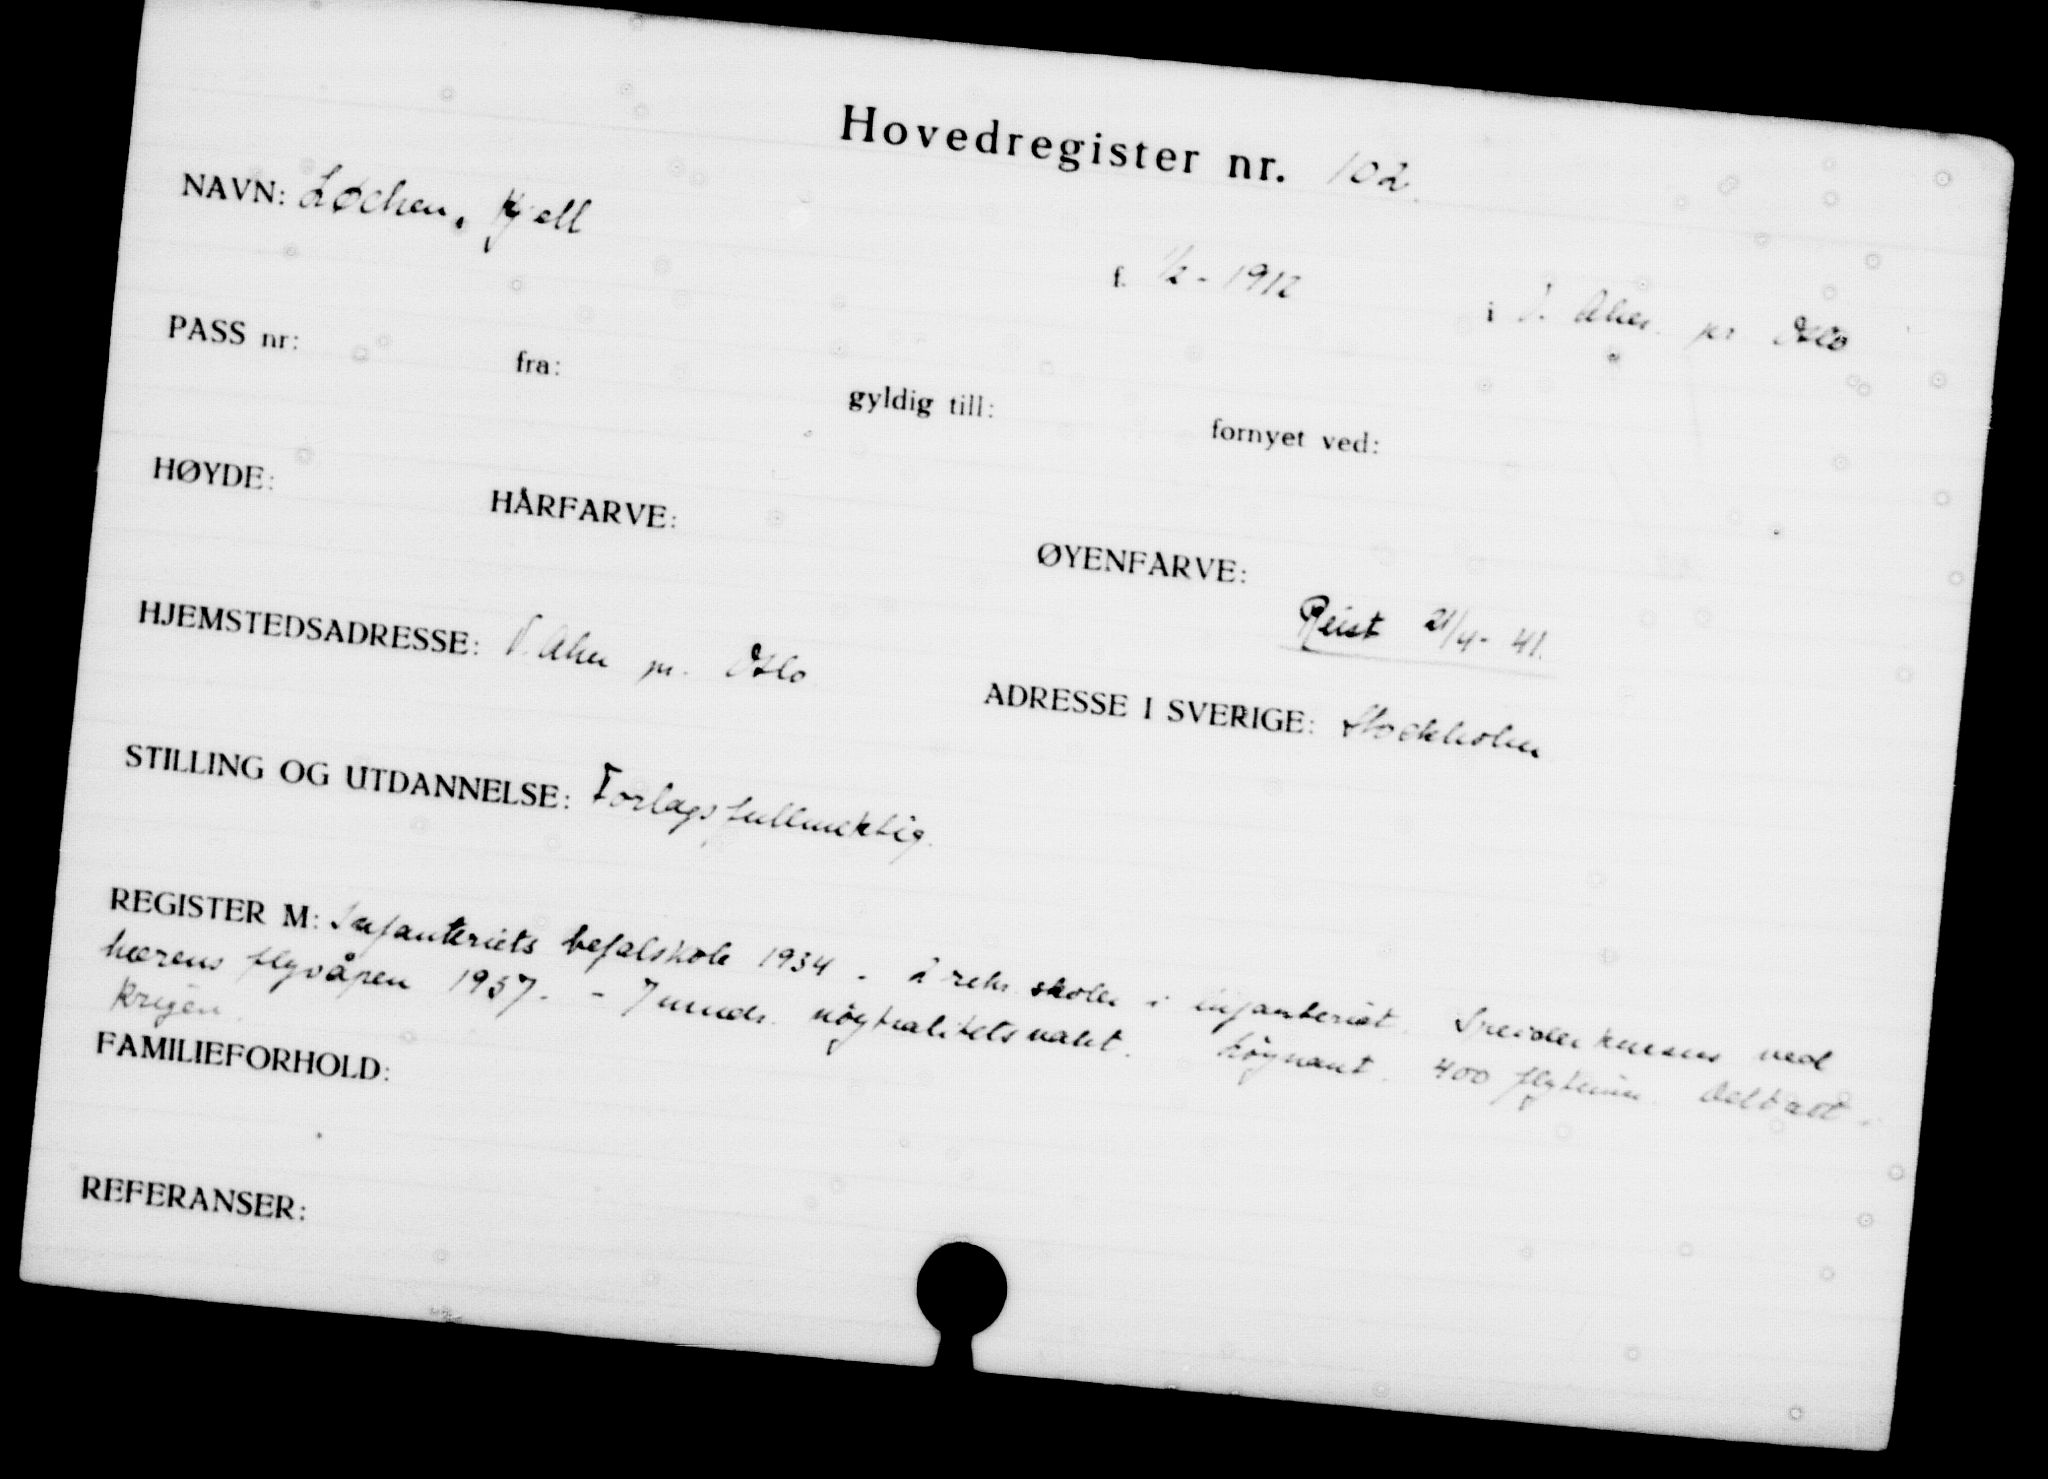 Hovedregister nr. 102.
NAVN: Løchen, Kjell f. 1/2 - 1912 i V. Aker pr Oslo
PASS nr: fra: gyldig till: fornyet ved:
HØYDE: HÅRFARVE: ØYENFARVE:
Reist 21/4- 41.
HJEMSTEDSADRESSE: V. Aker pr. Oslo ADRESSE I SVERIGE: Stockholm
STILLING OG UTDANNELSE: Forlagsfullmektig.
REGISTER M: Infanteriets befalskole 1934 - 2 rekr. skoler i infanteriet. Speiderkursus ved
hærens flyvåpen 1937. - 7 mndr. nøytralitetsvakt. Løynant. 400 flytimer. Deltatt i
krigen.
FAMILIEFORHOLD:
REFERANSER: